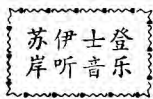 苏伊士登
岸听音乐